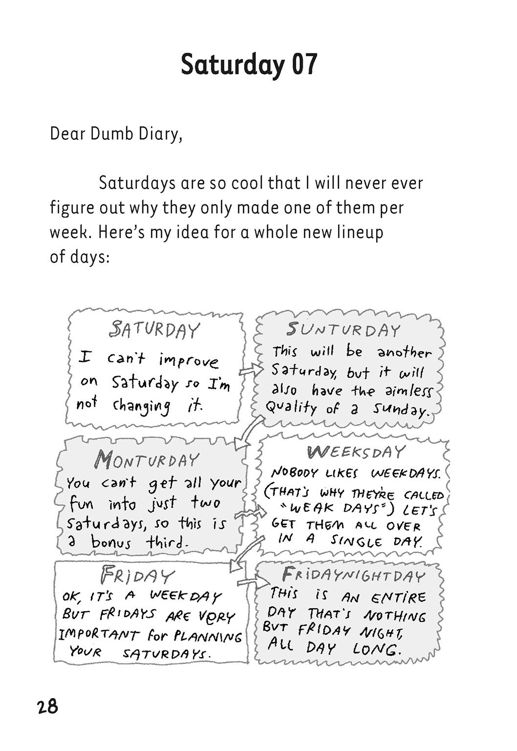 Saturday 07
Dear Dumb Diary,
Saturdays are so cool that I will never ever
figure out why they only made one of them per
week. Here’s my idea for a whole new lineup
of days:
SATURDAY
I can't improve
on Saturday so I'm
not changing it.
SUNTURDAY
This will be another
Saturday, but it will
also have the aimless
Quality of a Sunday.
MONTURDAY
You can't get all your
fun into just two
Saturdays, so this is
a bonus third.
WEEKSDAY
NOBODY LIKES WEEKDAYS.
(THAT'S WHY THEY'RE CALLED
"WEAK DAYS") LET'S
GET THEM ALL OVER
IN A SINGLE DAY.
FRIDAY
OK, IT'S A WEEKDAY
BUT FRIDAYS ARE VERY
IMPORTANT for PLANNING
YOUR SATURDAYS.
FRIDAYNIGHTDAY
THIS iS AN ENTIRE
DAY THAT'S NOTHING
BUT FRIDAY NIGHT,
ALL DAY LONG.
28